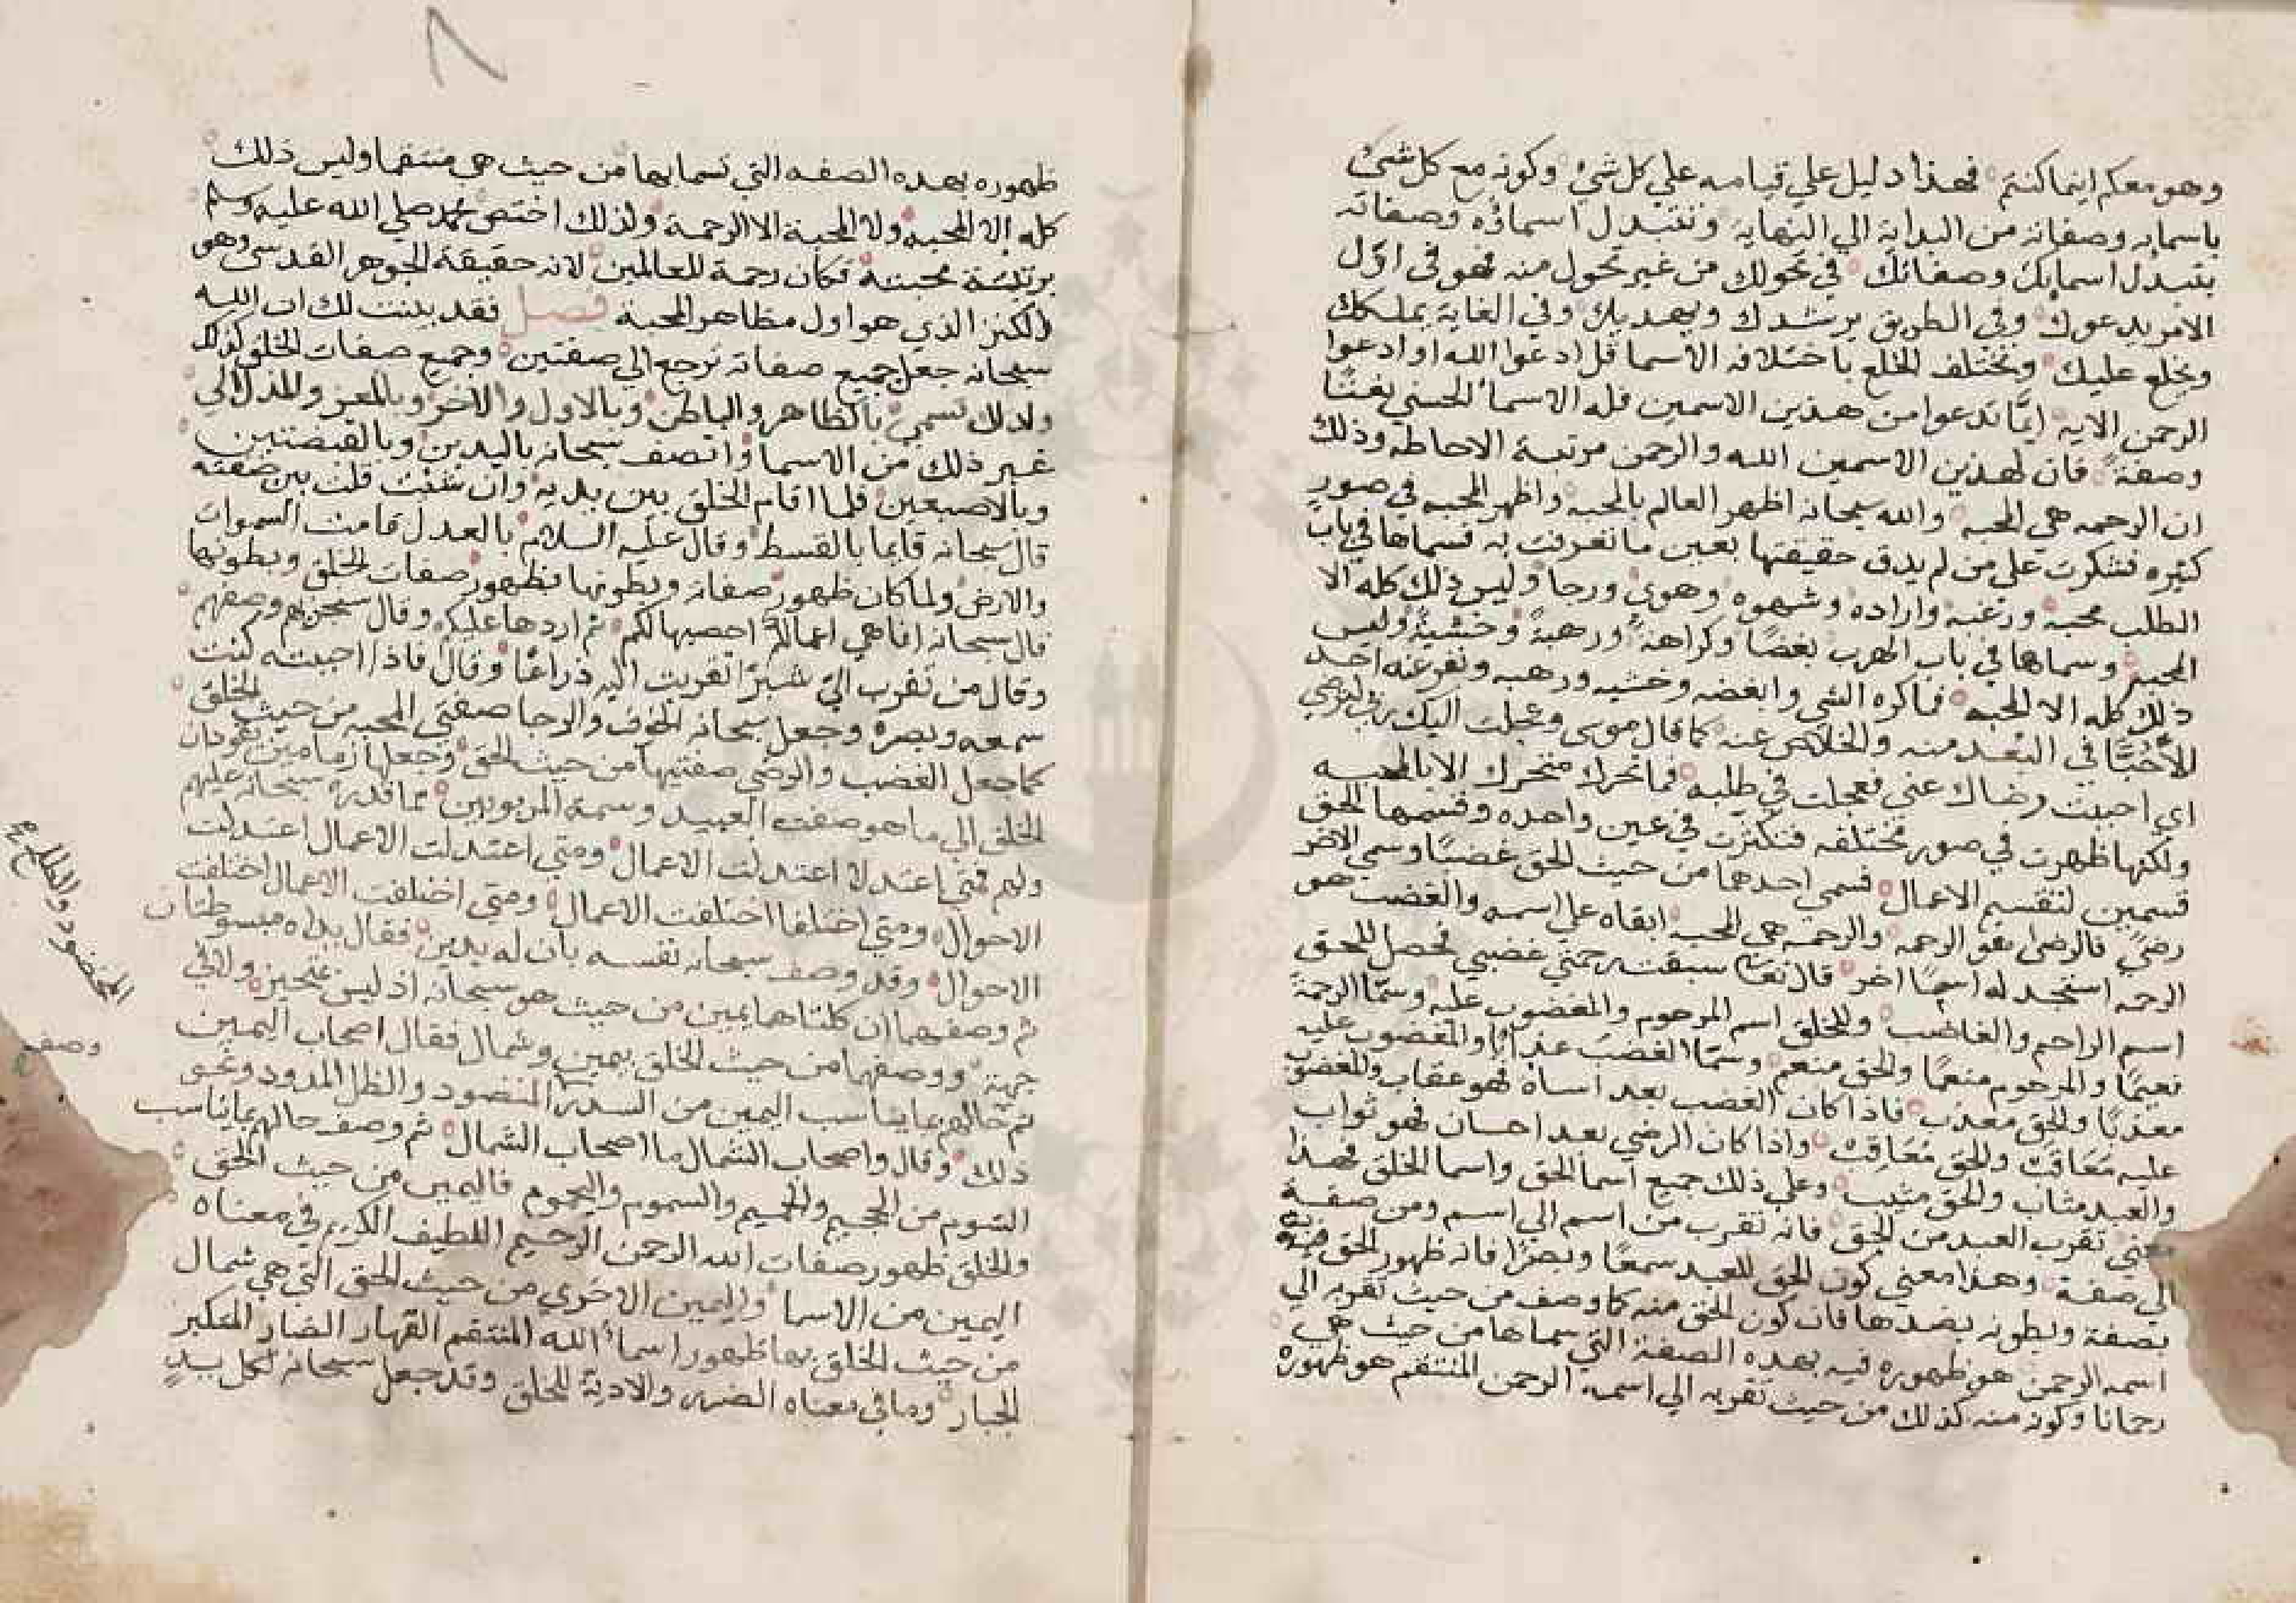 وهو معكم اينما كنتم فهذا دليل علي قيامه علي كل شيء وكونه مع كل شيء
باسمايه وصفاته من البداية الي النهاية وتتبدل اسماؤه وصفاته
بتبدل اسمايك وصفاتك في تحولك من غير تحول منه فهو في اوّل
الامر يدعوك وفي الطريق يرشدك ويهديك وفي الغاية يملكك
ويخلع عليك وتختلف الخلع باختلاف الاسما قل ادعوا الله او ادعوا
الرحمن الاية ايّا تدعوا من هذين الاسمين فله الاسماء الحسني نعتًا
وصفة فان لهذين الاسمين الله والرحمن مرتبة الاحاطه وذلك
ان الرحمه هي المحبه والله سبحانه اظهر العالم بالمحبه واظهر المحبه في صور
كثيره فتنكرت علي من لم يدق حقيقتها بعين ما تعرفت به فسماها في باب
الطلب محبة ورغبة واراده وشهوه وهوي ورجا وليس ذلك كله الا
المحبه وسماها في باب الهرب بغضًا وكراهة ورهبة وخشية وليس
ذلك كله الا المحبه فما كره الشي وابغضه وخشيه ورهبه ونفر عنه احد
الا حُبًّا في البعد منه والخلاص عنه كما قال موسى وعجلت اليك رب لترضي
اي احببت رضاك عني فعجلت في طلبه فما تحرك متحرك الا بالمحبه
ولكنها ظهرت في صور مختلفه فتكثرت في عين واحده وقسمها الحق
قسمين لتقسيم الاعمال فسمي احدها من حيث الحق غضبًا وسمي الاخر
رضيً فالرضي هو الرحمه والرحمه هي المحبه ابقاه علي اسمه والغضب هو
الرحمه استجد له اسمًا اخر قال تعا سبقت رحمتي غضبي فحصل للحق
اسم الراحم والغاضب وللخلق اسم المرحوم والمغضوب عليه وسمّا الرحمة
نعيمًا والمرحوم منعمًا والحق منعم وسمّا الغضب عذابًا والمغضوب عليه
معذبًا والحق معذب فاذا كان الغضب بعد اساة فهو عقاب والمغضوب
عليه مُعَاقَب والحق مُعَاقِب واذا كان الرضي بعد احسان فهو ثواب
والعبد مثاب والحق مثيب وعلي ذلك جميع اسما الحق واسما الخلق فهذا
معني تقرب العبد من الحق فانه تقرب من اسم الي اسم ومن صفة
الي صفة وهذا معني كون الحق للعبد سمعًا وبصرًا فانه ظهور الحق فيه
بصفة وبطونه بضدها فان كون الحق منه كما وصف من حيث تقربه الي
اسمه الرحمن هو ظهوره فيه بهذه الصفة التي سماها من حيث هي
رحمانا وكونه منه كذلك من حيث تقربه الي اسمه الرحمن المنتقم هو ظهوره
ظهوره بهذه الصفه التي تسما بها من حيث هي منتقما وليس ذلك
كله الا المحبه ولا المحبة الا الرحمة ولذلك اختص محمد صلي الله عليه وسلم
برتبة محبته فكان رحمة للعالمين لانه حقيقة الجوهر القدسي وهو
الكنز الذي هو اول مظاهر المحبة فصل فقد بينت لك ان الله
سبحانه جعل جميع صفاته ترجع الي صفتين وجميع صفات الخلق كذلك
ولذلك تسمي بالظاهر والباطن وبالاول والاخر وبالمعز والمذل الي
غير ذلك من الاسما واتصف سبحانه باليدين وبالقبضتين
وبالاصبعين فلما اقام الخلق بين يديه وان شئت قلت بين صفته
قال سبحانه قايما بالقسط وقال عليه السلام بالعدل قامت السموات
والارض ولما كان ظهور صفاته وبطونها بظهور صفات الخلق وبطونها
قال سبحانه انما هي اعمالكم احصيها لكم ثم اردها عليكم وقال سنجزيهم وصفهم
وقال من تقرب اليّ شبرًا تقربت اليه ذراعًا وقال فاذا احببته كنت
سمعه وبصره وجعل سبحانه الخوف والرجا صفتي المحبه من حيث الخلق
كما جعل الغضب والرضي صفتيها من حيث الحق وجعلها زمامين يقودان
الخلق الي ما هو صفة العبيد وسمة المربوبين مما قدره سبحانه عليهم
ولهم فمتي اعتدلا اعتدلت الاعمال ومتي اعتدلت الاعمال اعتدلت
الاحوال ومتي اختلفا اختلفت الاعمال ومتي اختلفت الاعمال اختلفت
الاحوال وقد وصف سبحانه نفسه بان له يدين فقال يداه مبسوطتان
ثم وصفهما ان كلتاهما يمين من حيث هو سبحانه اذ ليس بمتحيز ولا في
جهة ووصفها من حيث الخلق بيمين وشمال فقال اصحاب اليمين
ثم حالهم بما يناسب اليمين من السدر المنضود والظل الممدود ونحو
ذلك وقال واصحاب الشمال ما اصحاب الشمال ثم وصف حالهم بما يناسب
الشوم من الجحيم والحميم والسموم واليحموم فاليمين من حيث الحق
والخلق ظهور صفات الله الرحمن الرحيم اللطيف الكريم في معناه
اليمين من الاسما واليمين الاخري من حيث الحق التي هي شمال
من حيث الخلق بها ظهور اسماء الله المنتقم القهار الضار المتكبر
الجبار وما في معناه الضر والاذية للخلق وقد جعل سبحانه لكل يد
المخضود والطلح صح
وصف